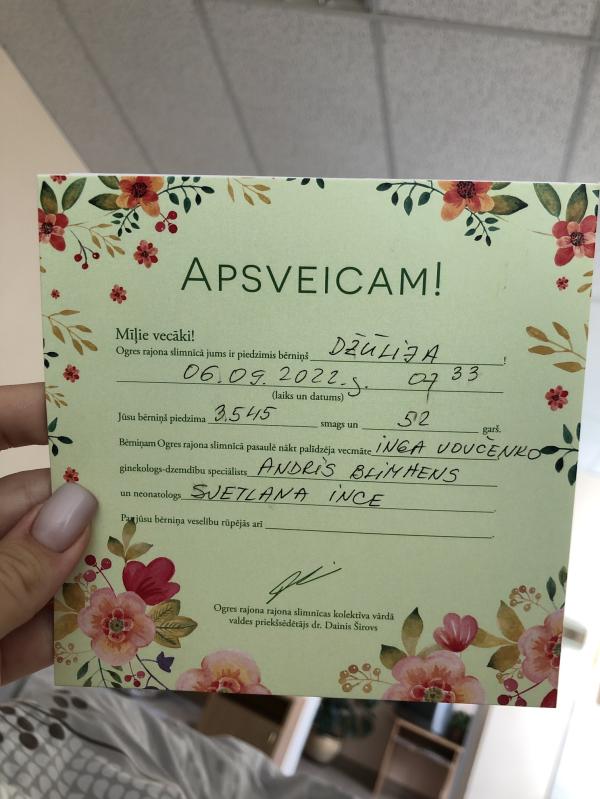 APSVEICAM!
Mīļie vecāki!
Ogres rajona slimnīcā jums ir piedzimis bērniņš DŽŪLIJA !
06.09.2022.g. 07 33
(laiks un datums)
Jūsu bērniņš piedzima 3,545 smags un 52 garš.
Bērniņam Ogres rajona slimnīcā pasaulē nākt palīdzēja vecmāte INGA VOVČENKO
ginekologs-dzemdību speciālists ANDRIS BLIMHENS
un neonatologs SVETLANA INCE
Par jūsu bērniņa veselību rūpējās arī
Ogres rajona rajona slimnīcas kolektīva vārdā
valdes priekšsēdētājs dr. Dainis Širovs